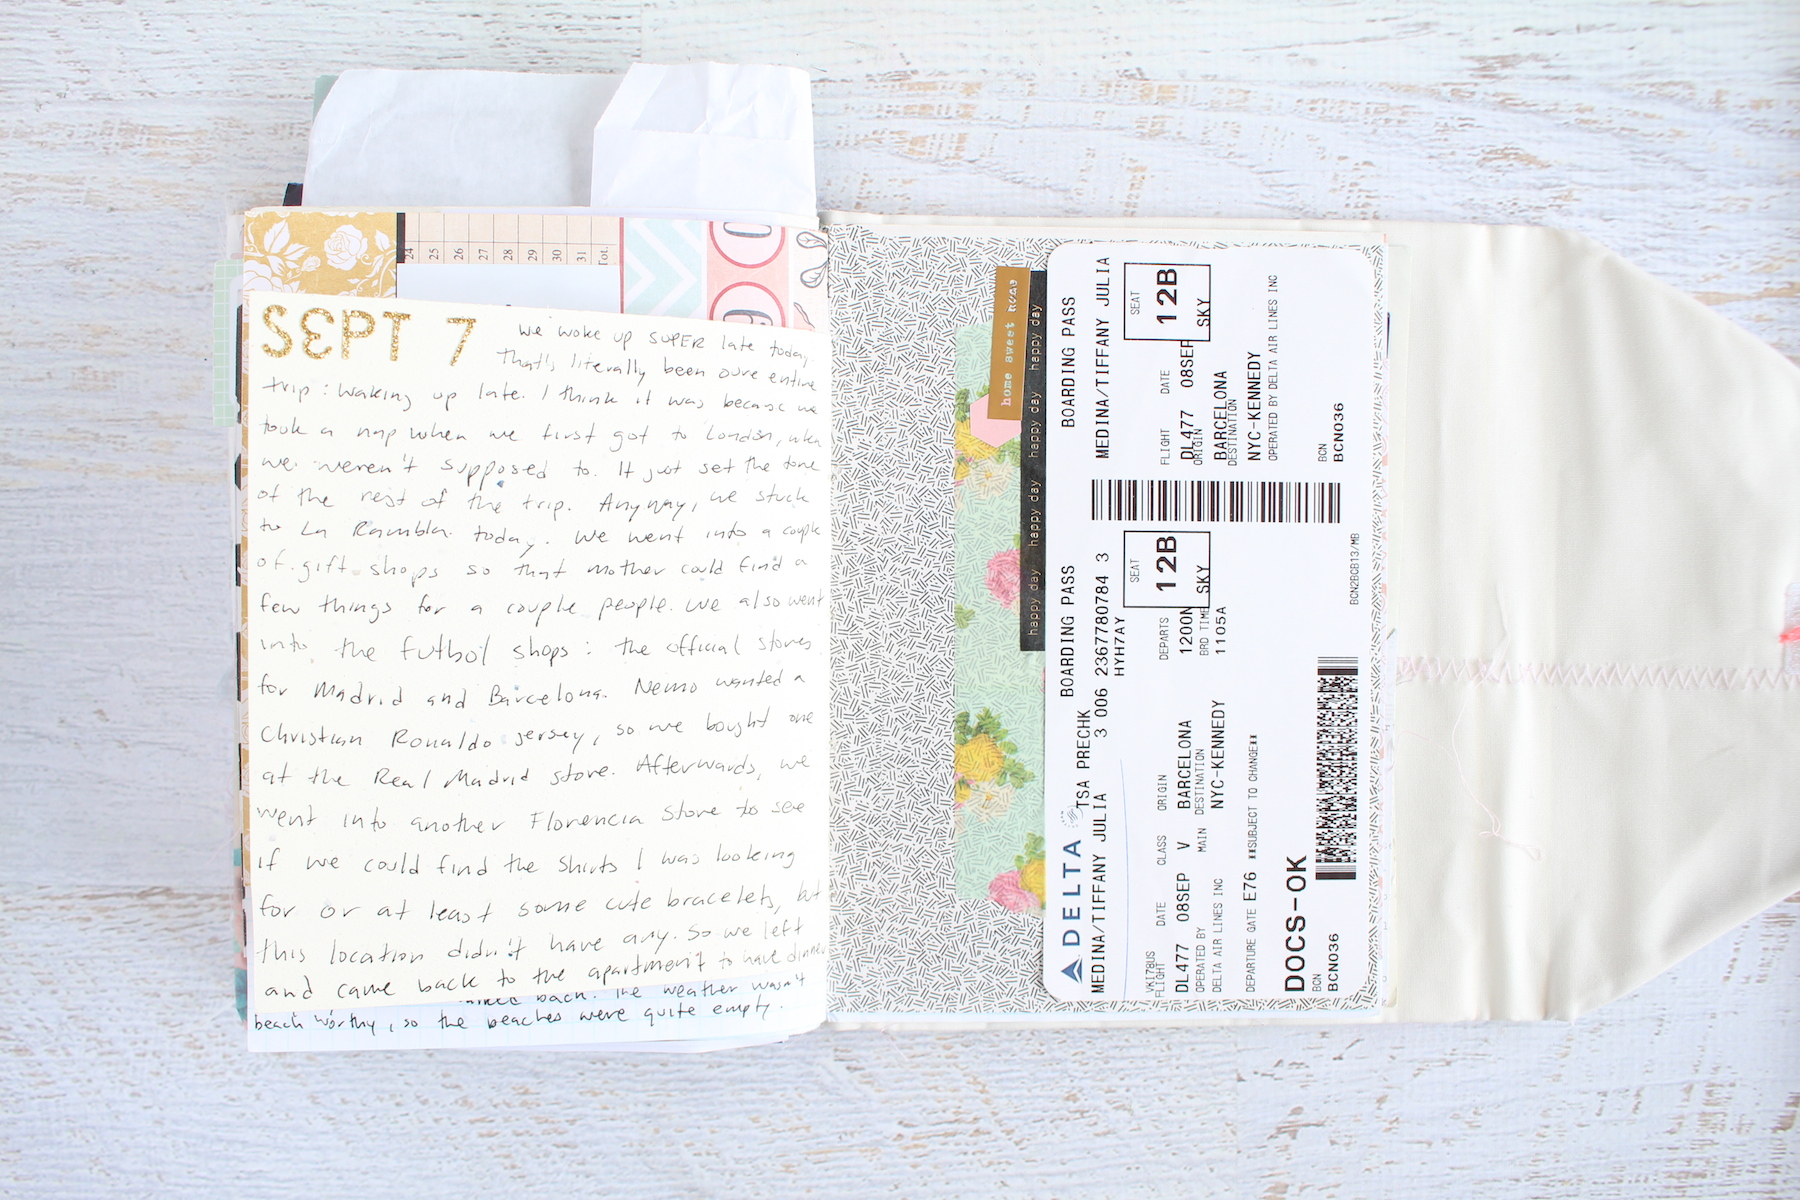 24 25 26 27 28 29 30 31 Tot.
SEPT 7
We woke up SUPER late today.
That's literally been oure entire
trip: waking up late. I think it was because we
took a nap when we first got to London, when
we weren't supposed to. It just set the tone
of the rest of the trip. Anyway, we stuck
to La Rambla today. We went into a couple
of gift shops so that mother could find a
few things for a couple people. We also went
into the futbol shops: the official stores
for Madrid and Barcelona. Nemo wanted a
Christian Ronaldo jersey, so we bought one
at the Real Madrid store. Afterwards, we
went into another Florencia store to see
if we could find the shirts I was looking
for or at least some cute bracelets, but
this location didn't have any. So we left
and came back to the apartment to have dinner
back. The weather wasn't
beach worthy, so the beaches were quite empty.
home sweet home
happy day happy day happy day happy day
DELTA
TSA PRECHK
BOARDING PASS
MEDINA/TIFFANY JULIA
3 006 2367780784 3
HYH7AY
SEAT
12B
SKY
VKI78US
FLIGHT DATE CLASS ORIGIN DEPARTS
DL477 08SEP V BARCELONA 1200N
OPERATED BY MAIN DESTINATION BRD TIME
DELTA AIR LINES INC NYC-KENNEDY 1105A
DEPARTURE GATE E76 **SUBJECT TO CHANGE**
DOCS-OK
BCN
BCN036
BCN2BCB13/MB
BOARDING PASS
MEDINA/TIFFANY JULIA
SEAT
12B
SKY
FLIGHT DATE
DL477 08SEP
ORIGIN
BARCELONA
DESTINATION
NYC-KENNEDY
OPERATED BY DELTA AIR LINES INC
BCN
BCN036